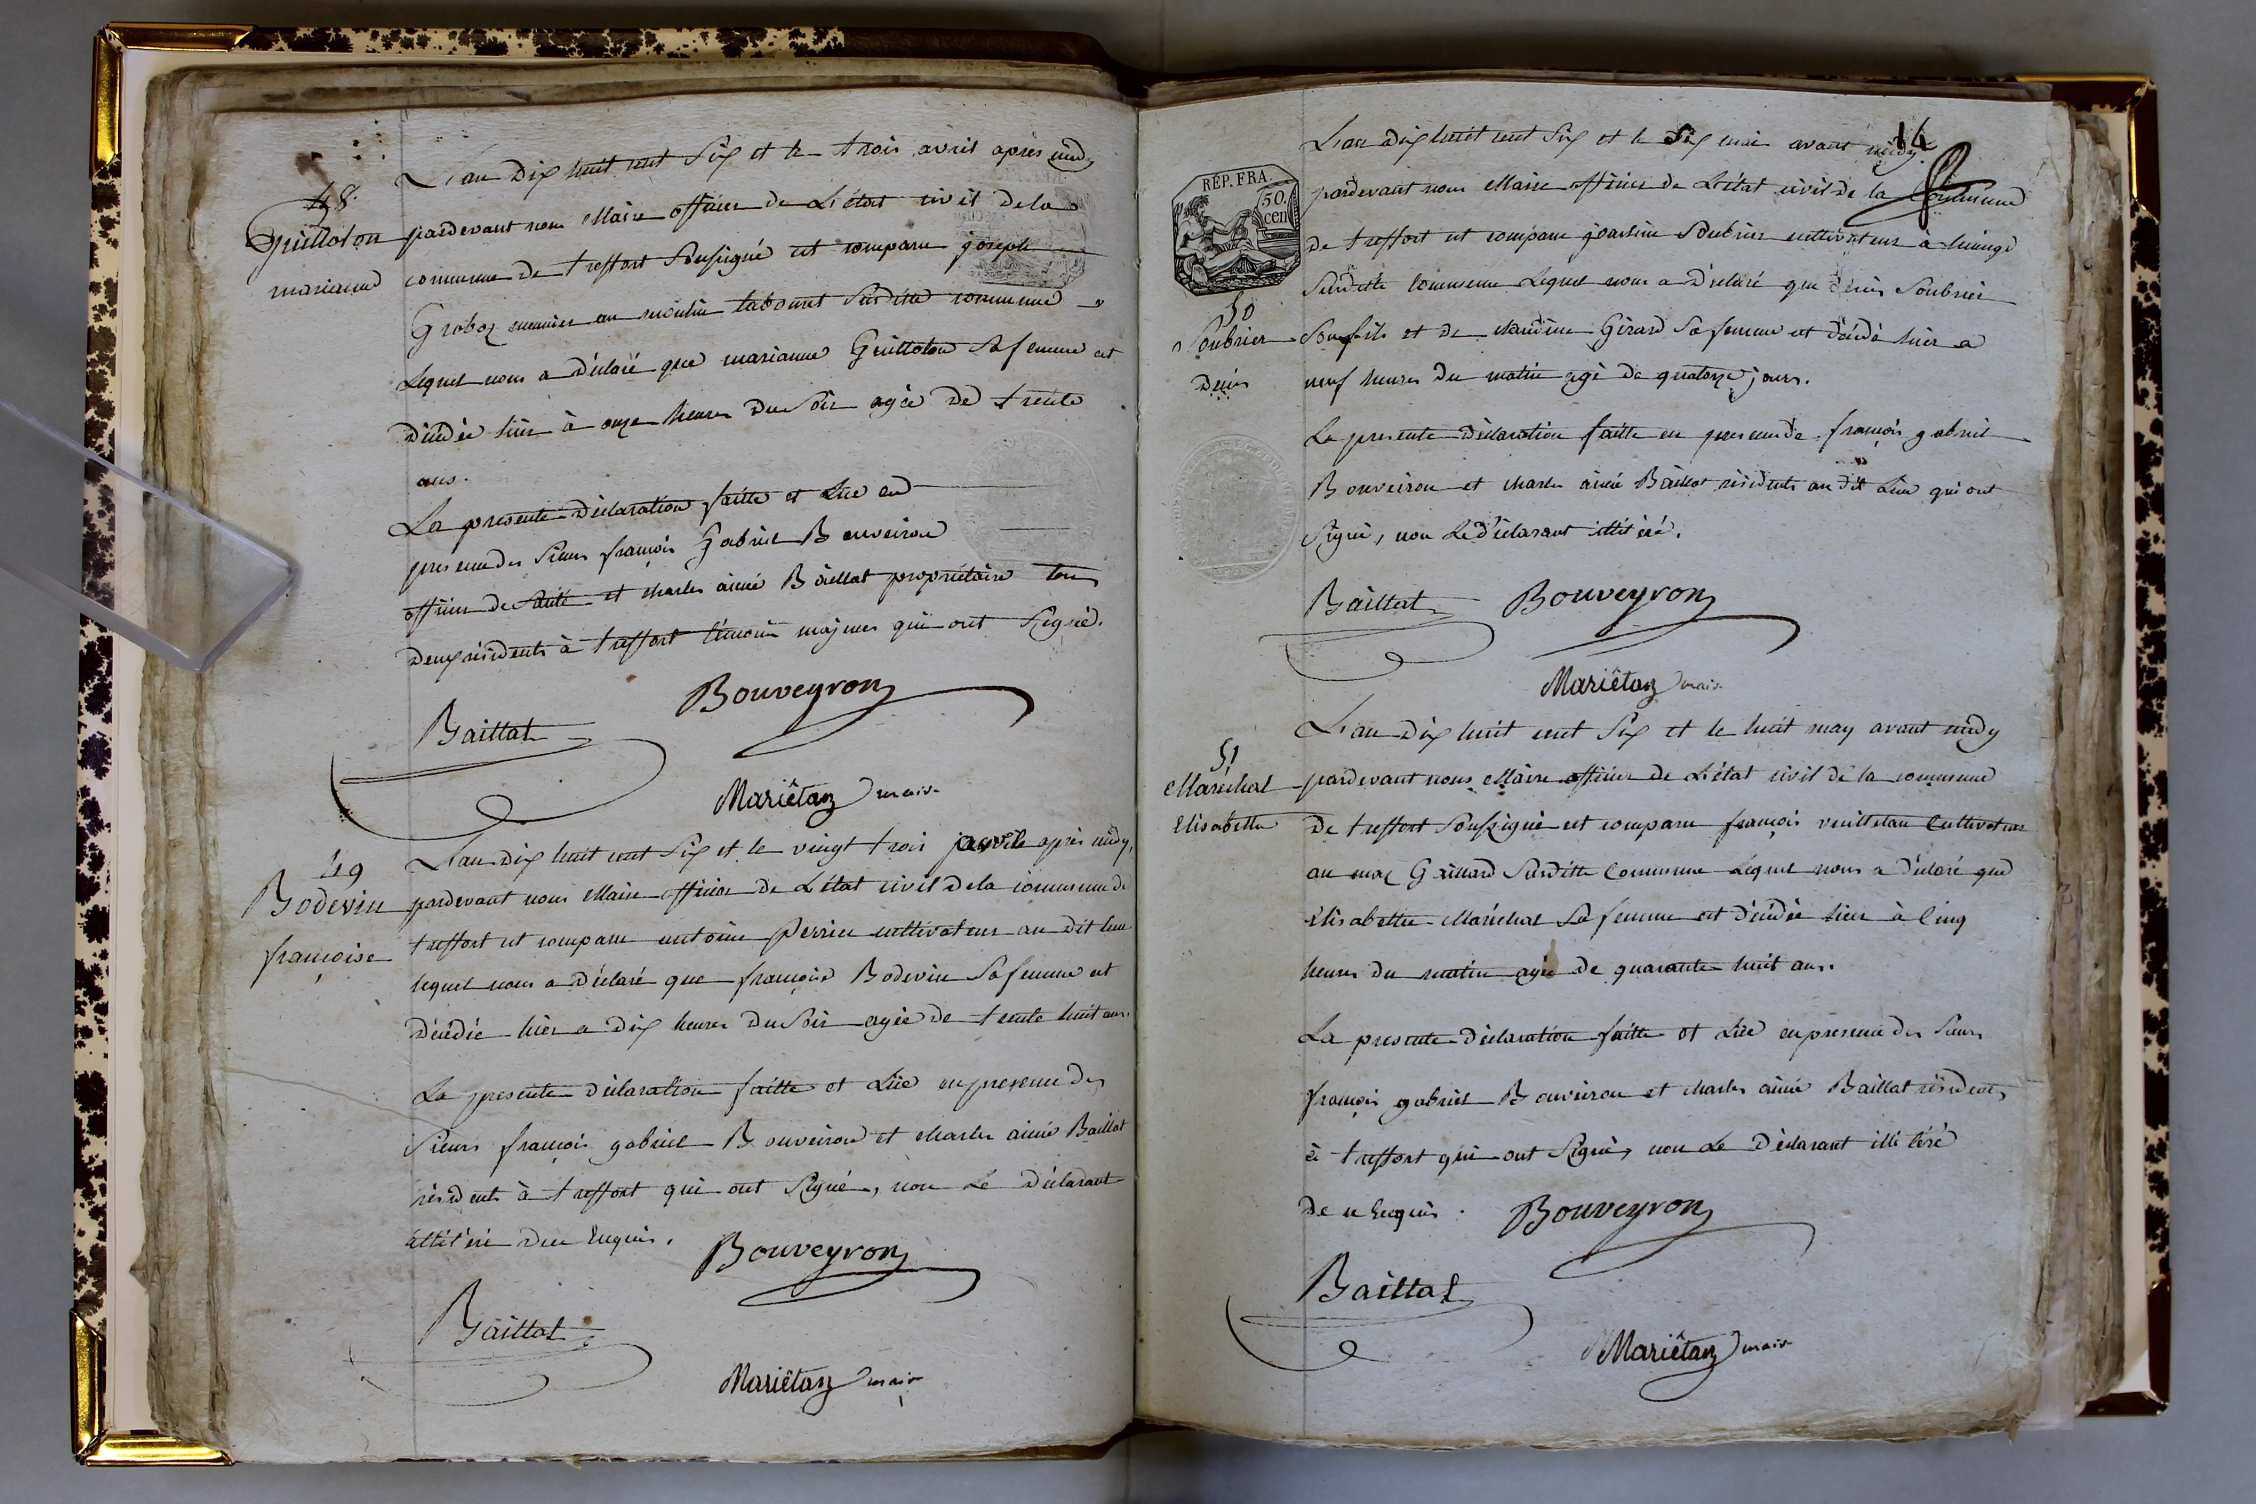 48.
Guilloton
marianne
L'an Dix huit cent Six et le trois avril après midy
pardevant nous Maire officier de L'état civil de la
commune de treffort Soussigné est comparu joseph
Groboz meunier au moulin tabouret Susditte commune
Lequel nous a déclaré que marianne Guilloton Sa femme est
décédée hier à onze heures du Soir agée de trente
ans.
La presente déclaration faitte et Lüe en
presence des Sieurs françois Gabriel Bouveiron
officier de Santé et charles aimé Baillat propriétaire tous
deux résidents à treffort témoins majeurs qui ont Signé.
Bouveyron
Baillat
Mariétan maire
49
Bodevin
françoise
L'an dix huit cent Six et le vingt trois avril après midy,
pardevant nous Maire officier de L'état civil de la commune de
treffort est comparu antoine Perrier cultivateur au dit lieu
lequel nous a déclaré que françoise Bodevin Sa femme est
décédée hier a dix heures du Soir agée de trente huit ans.
La presente déclaration faitte et Lüe en presence des
Sieurs françois gabriel Bouveiron et charles aimé Baillat
résidents à treffort qui ont Signé, non Le déclarant
illitéré de ce Enquis.
Bouveyron
Baillat
Mariétan maire
14
RÉP. FRA.
50.
cen
L'an dix huit cent Six et le Six mai avant midy
pardevant nous Maire officier de L'état civil de la Commune
de treffort est comparu Soubrier cultivateur à
Susditte commune Lequel nous a déclaré que Denis Soubrier
50
Soubrier
Denis
Son fils et de Claudine Girard Sa femme est décédé hier a
neuf heures du matin agé de quatorze jours.
La presente déclaration faitte en presence de françois gabriel
Bouveiron et charles aimé Baillat résidents au dit Lieu qui ont
Signé, non Le déclarant illitéré.
Baillat
Bouveyron
Mariétan maire
51
Maréchal
Elisabeth
L'an Dix huit cent Six et le huit may avant midy
pardevant nous Maire officier de L'état civil de la commune
de treffort Soussigné est comparu françois Cultivateur
au maz Gaillard Susditte Commune Lequel nous a déclaré que
Elisabeth Maréchal Sa femme est décédée hier à Cinq
heures du matin agée de quarante huit ans.
La presente déclaration faitte et Lüe en presence des Sieurs
françois gabriel Bouveiron et charles aimé Baillat résidents
à treffort qui ont Signé, non Le déclarant illitéré
de ce Enquis.
Bouveyron
Baillat
Mariétan maire